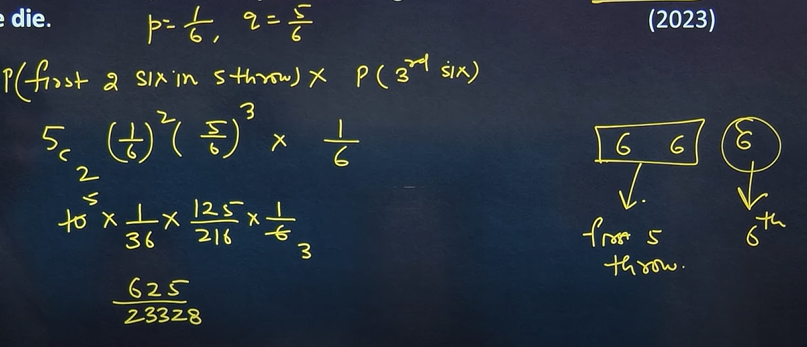 e die.
p = 1/6, q = 5/6
(2023)
P(first 2 six in 5 throw) × P(3rd six)
5c2 (1/6)^2 (5/6)^3 × 1/6
10 5 × 1/36 × 125/216 × 1/6 3
625/23328
6 6 6
first 5 throw.
6th